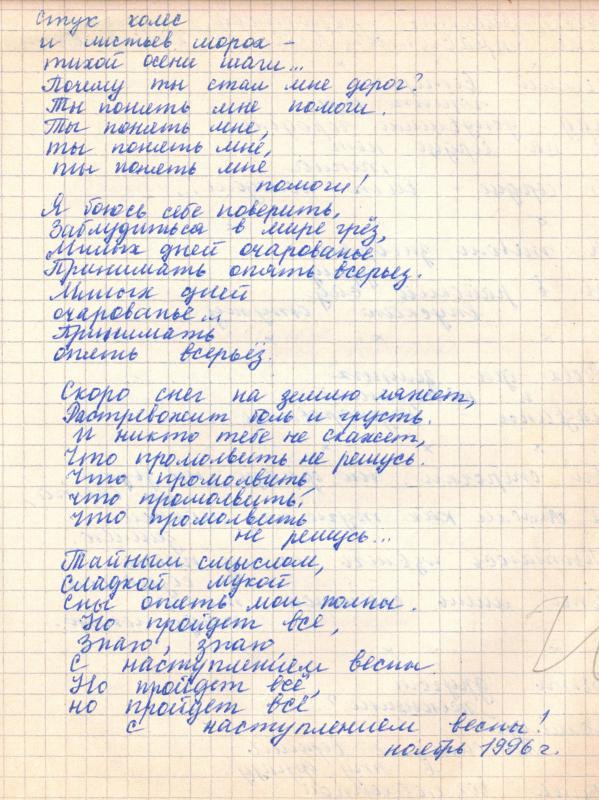 Стук колес
и листьев шорох –
тихой осени шаги...
Почему ты стал мне дорог?
Ты понять мне помоги.
Ты понять мне,
ты понять мне,
ты понять мне
помоги!
Я боюсь себе поверить,
Заблудиться в мире грёз,
Милых дней очарованье
Принимать опять всерьез.
Милых дней
очарованье...
Принимать
опять всерьёз.
Скоро снег на землю ляжет,
Растревожит боль и грусть.
И никто тебе не скажет,
Что промолвить не решусь.
Что промолвить,
что промолвить,
что промолвить
не решусь...
Тайным смыслом,
сладкой мукой
Сны опять мои полны.
Но пройдет всё,
Знаю, знаю
С наступлением весны
Но пройдет всё,
но пройдет всё
с наступлением весны!
ноябрь 1996 г.